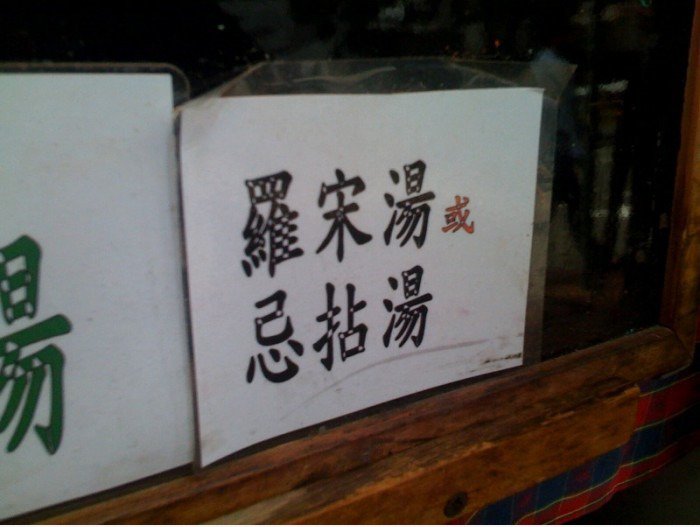 湯
羅宋湯或
忌拈湯